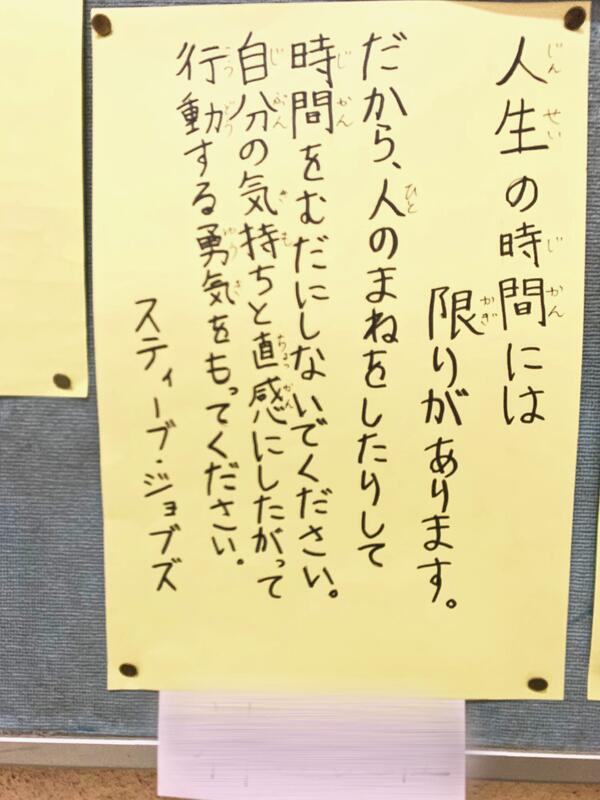 人生の時間には
限りがあります。
だから、人のまねをしたりして
時間をむだにしないでください。
自分の気持ちと直感にしたがって
行動する勇気をもってください。
スティーブ・ジョブズ